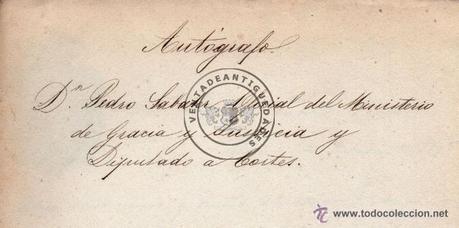 Autógrafo.
Dn Pedro Sabater, Oficial del Ministerio
de Gracia y Justicia y
Diputado a Cortes.
VENTADEANTIGUEDADES
www.todocoleccion.net